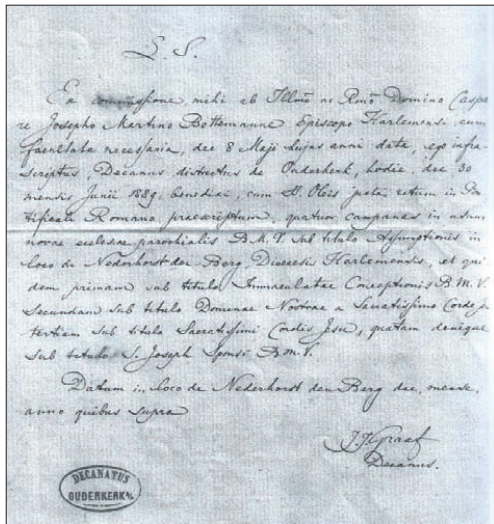 L. S.
Ex commissione, mihi ab Illmo ac Rmo Domino Caspa
re Josepho Martino Bottemanne Episcopo Harlemensi cum
facultate necessaria, die 8 Maji hujus anni data, ego infra
scriptus, Decanus districtus de Ouderkerk, hodie, die 30
mensis Junii 1889, benedixi, cum SS. Oleis juxta ritum in Pon
tificali Romano praescriptum, quatuor campanas in usum
novae ecclesiae parochialis B.M.V. sub titulo Assumptionis in
loco de Nederhorst den Berg Dioecesis Harlemensis, et qui
dem primam sub titulo Immaculatae Conceptionis B.M.V.
Secundam sub titulo Dominae Nostrae a Sacratissimo Corde
tertiam sub titulo Sacratissimi Cordis Jesu, quatam denique
sub titulo S. Joseph Sponsi B.M.V.
Datum in loco de Nederhorst den Berg die, mense,
anno quibus supra
J.J. Graaf
Decanus.
DECANATUS
OUDERKERK a/A